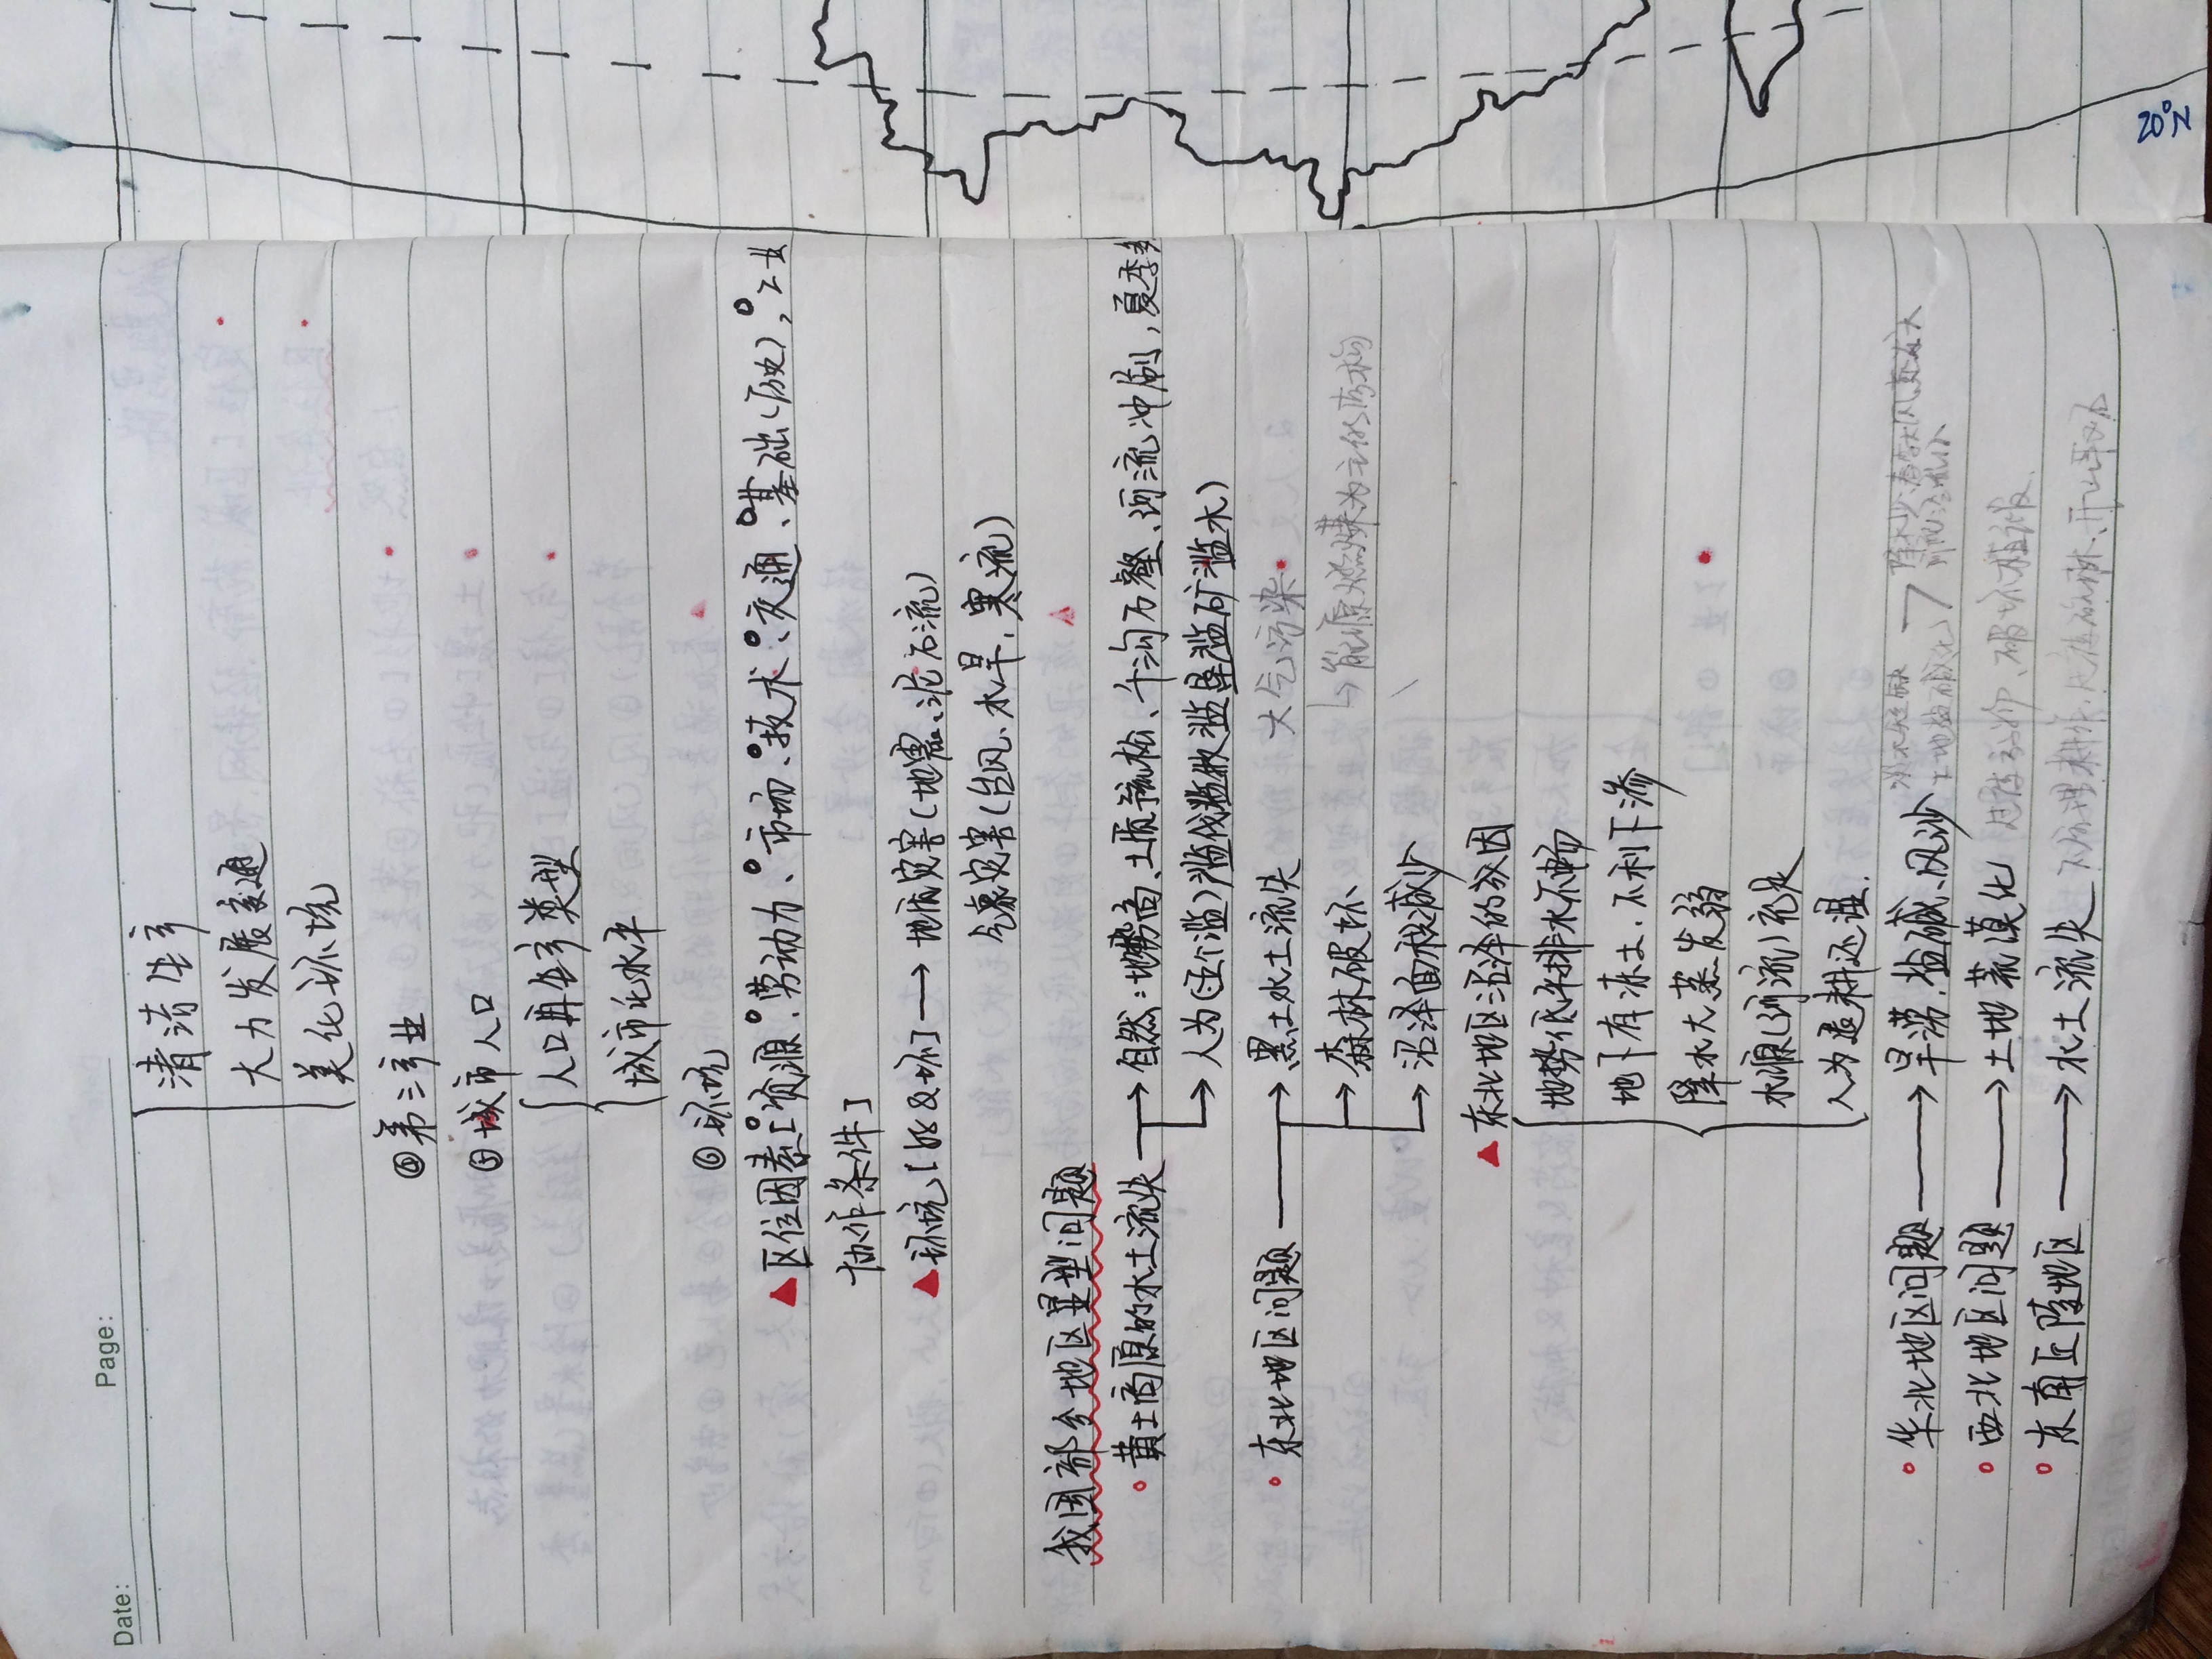 Date: Page:
清洁生产
大力发展交通
美化环境
④第三产业
⑤城市人口
人口再生产类型
城市化水平
⑥环境
▲区位因素[资源、劳动力、市场、技术、交通、基础(历史),工业
协作条件]
▲环境[好&坏]→地质灾害(地震、泥石流)
气象灾害(台风、水旱,寒流)
我国部分地区显型问题
黄土高原的水土流失→自然:地势高、土质疏松、千沟万壑、河流冲刷,夏季
→人为(五个滥)滥伐滥牧滥垦滥矿滥水)
东北地区问题→黑土水土流失 大气污染
→森林破坏 能源燃煤为主的结构
→沼泽面积减少
▲东北地区沼泽的成因
地势低平排水不畅
地下有冻土,不利下渗
降水大蒸发弱
水源(河流)充足
人为退耕还湿.
华北地区问题→旱涝,盐碱、风沙 淡水短缺 降水少、春季大风、蒸发大
土地盐碱化
西北地区问题→土地荒漠化 破坏植被
东南丘陵地区→水土流失 不合理耕作,过度砍林、开山采石
20°N